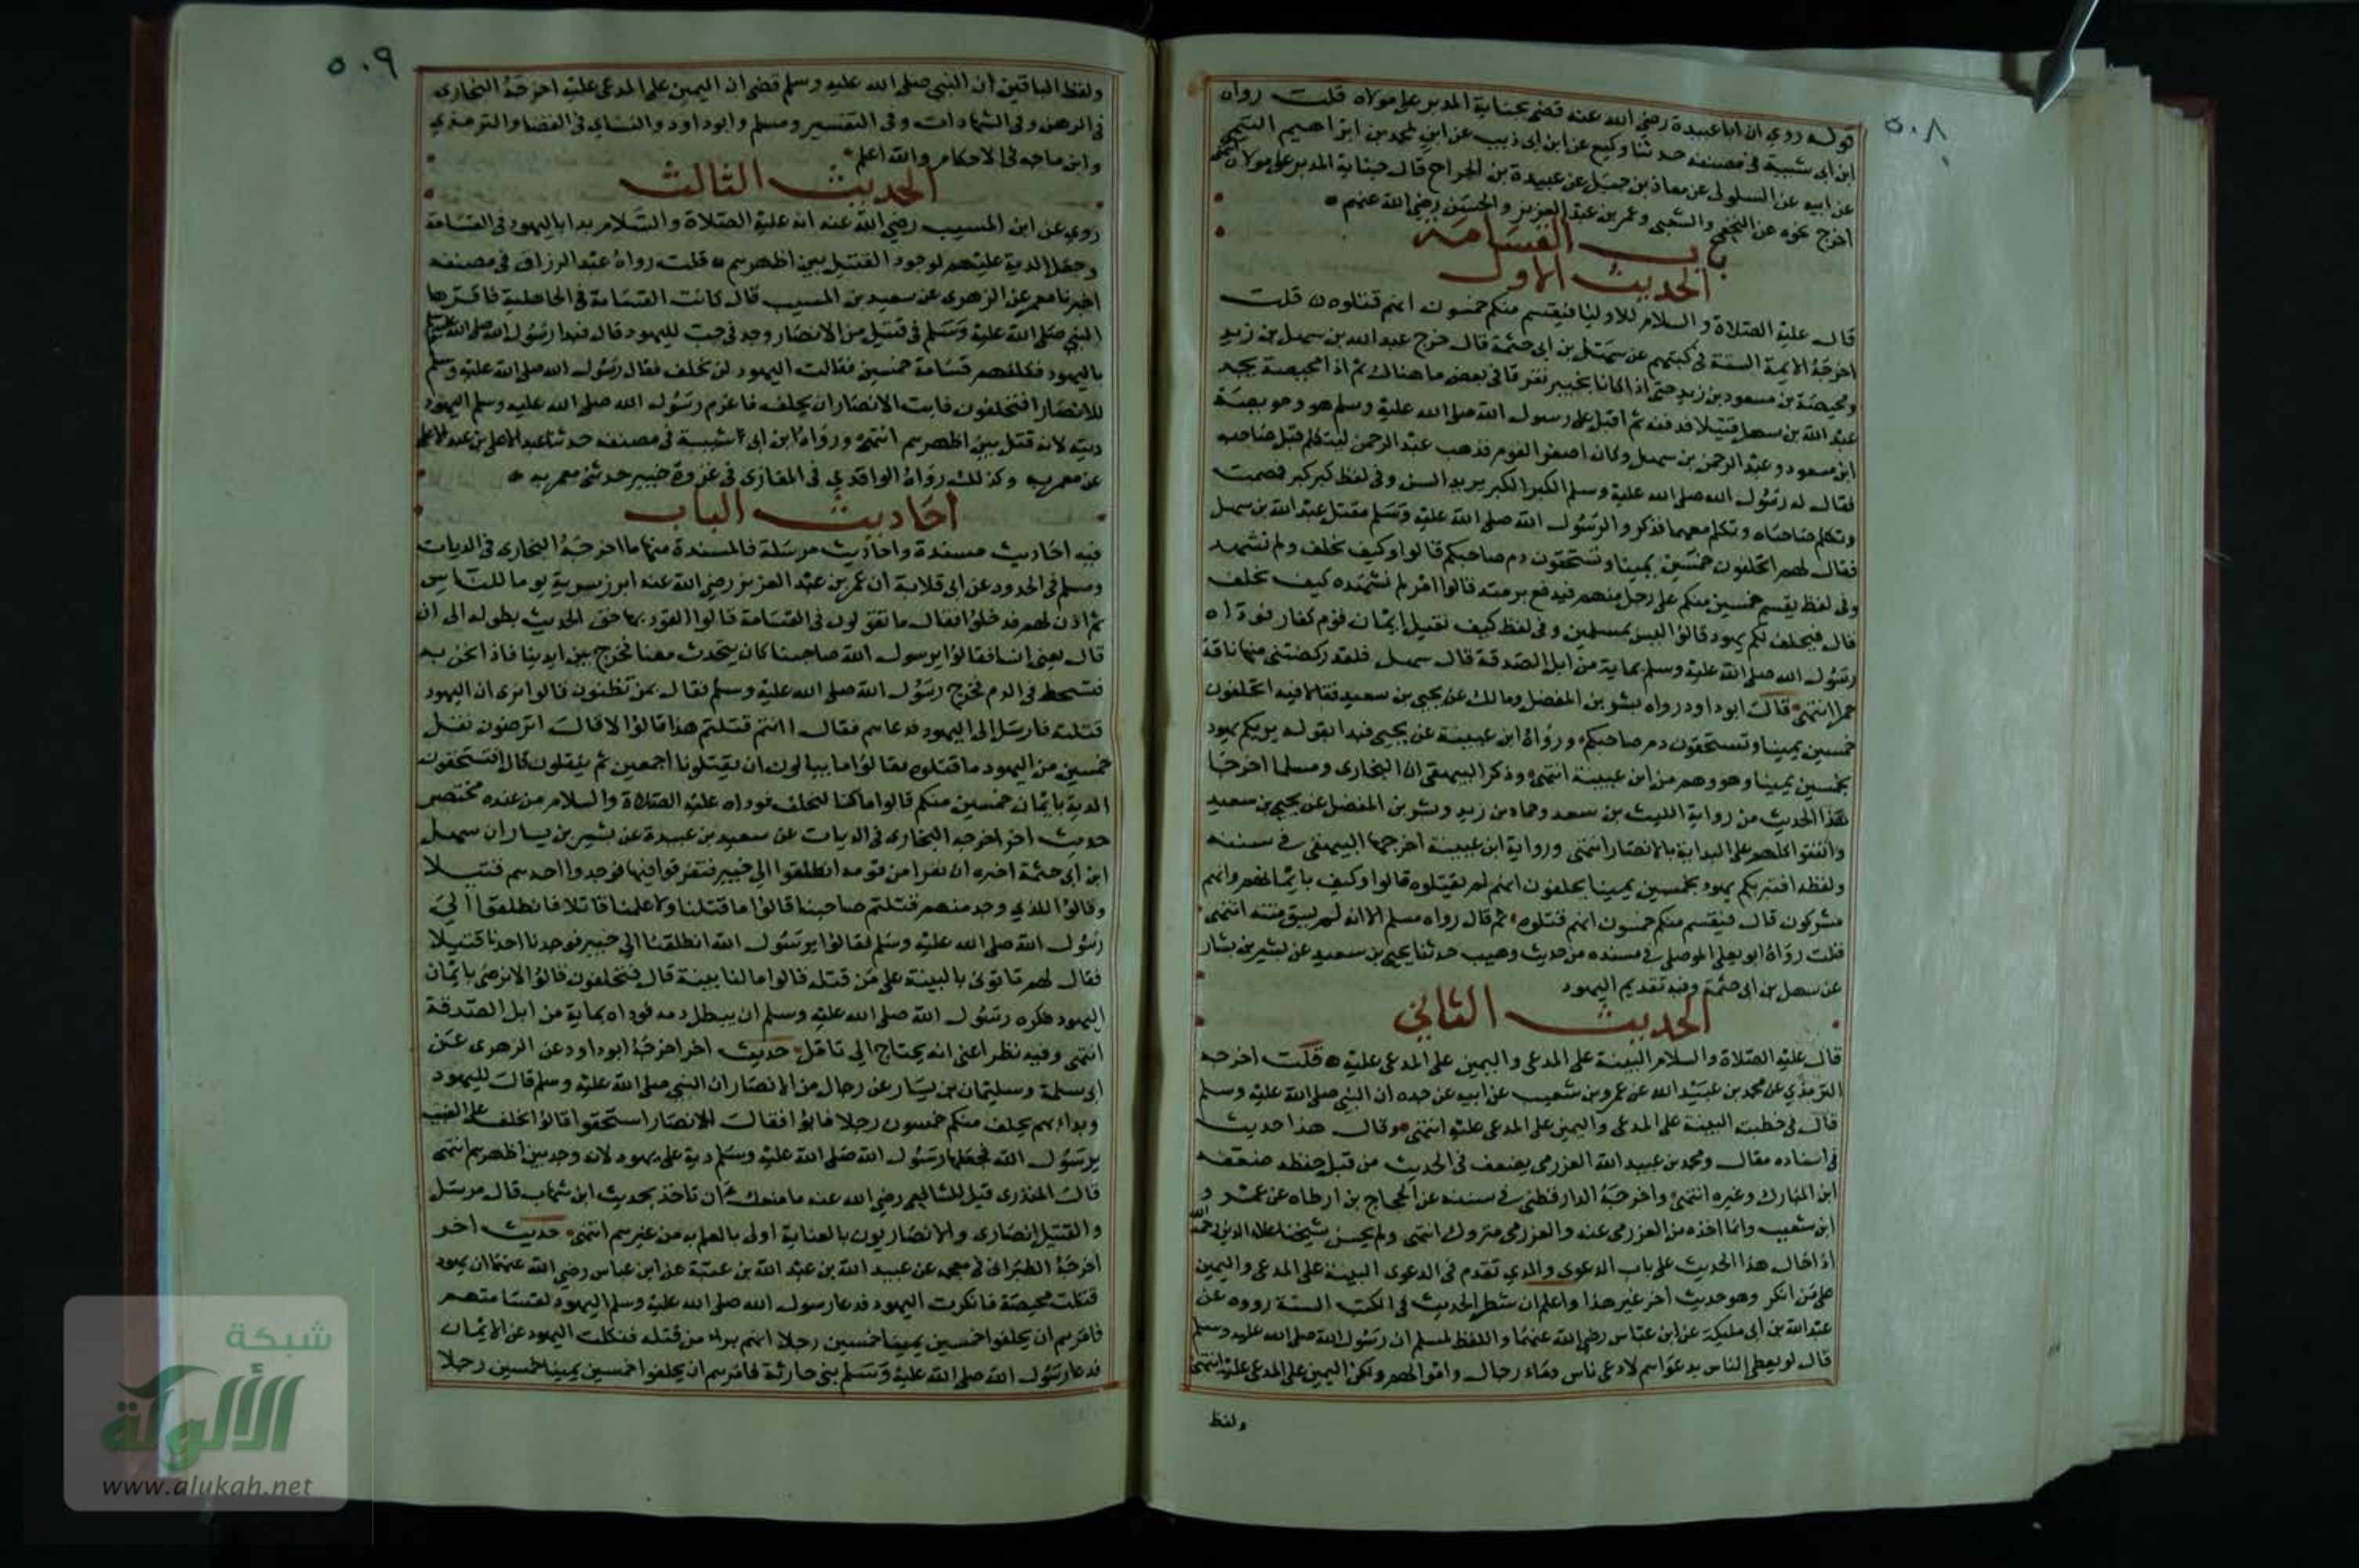 ٥٠٨
قوله روي ان اباعبيدة رضي الله عنه قضى بجناية المدبر على مولاه قلت رواه
ابن ابى شيبة فى مصنفه حدثنا وكيع عن ابن ابى ذيب عن ابن لمحمد بن ابراهيم التيمى
عن ابيه عن السلولى عن معاذ بن جبل عن عبيدة بن الجراح قال جناية المدبر على مولاه انتهى
اخرج نحوه عن النخعى والشعبى وعمر بن عبد العزيز والحسن رضي الله عنهم
باب القسامة
الحديث الاول
قال عليه الصلاة والسلام للاوليا فيقسم منكم خمسون انهم قتلوه قلت
اخرجه الايمة الستة فى كتبهم عن سهل بن ابى حثمة قال خرج عبد الله بن سهل بن زيد
ومحيصة بن مسعود بن زيد حتى اذا كانا بخيبر تفرقا فى بعض ما هناك ثم اذا محيصة يجد
عبد الله بن سهل قتيلا فدفنه ثم اقبل على رسول الله صلى الله عليه وسلم هو وحويصة
ابن مسعود وعبد الرحمن بن سهل وكان اصغر القوم فذهب عبد الرحمن ليتكلم قبل صاحبه
فقال له رسول الله صلى الله عليه وسلم الكبر الكبر يريد السن وفى لفظ كبر كبر فصمت
وتكلم صاحباه وتكلم معهما فذكروا لرسول الله صلى الله عليه وسلم مقتل عبد الله بن سهل
فقال لهم اتحلفون خمسين يمينا وتستحقون دم صاحبكم قالوا وكيف نحلف ولم نشهد
وفى لفظ يقسم خمسين منكم على رجل منهم فيدفع برمته قالوا امر لم نشهده كيف نحلف
قال فيحلف لكم يهود قالوا ليس بمسلمين وفى لفظ كيف نقبل ايمان قوم كفار فوداه
رسول الله صلى الله عليه وسلم بماية من ابل الصدقة قال سهل فلقد ركضتنى منها ناقة
حمرا انتهى قال ابو داود رواه بشر بن المفضل ومالك عن يحيى بن سعيد فقالا فيه اتحلفون
خمسين يمينا وتستحقون دم صاحبكم ورواه ابن عيينة عن يحيى فبدا بقوله يبريكم يهود
بخمسين يمينا وهو وهم من ابن عيينة انتهى وذكر البيهقى ان البخارى ومسلما اخرجا
هذا الحديث من رواية الليث بن سعد وحماد بن زيد وبشر بن المفضل عن يحيى بن سعيد
واتفقوا كلهم على البداية بالانصار انتهى ورواية ابن عيينة اخرجها البيهقى فى سننه
ولفظه افتبريكم يهود بخمسين يمينا يحلفون انهم لم يقتلوه قالوا وكيف بايمانهم وانهم
مشركون قال فيقسم منكم خمسون انهم قتلوه ثم قال رواه مسلم الا انه لم يسق متنه انتهى
قلت رواه ابو يعلى الموصلى فى مسنده من حديث وهيب حدثنا يحيى بن سعيد عن بشير بن يسار
عن سهل بن ابى حثمة وفيه تقديم اليهود
الحديث الثانى
قال عليه الصلاة والسلام البينة على المدعى واليمين على المدعى عليه قلت اخرجه
الترمذي عن محمد بن عبيد الله عن عمرو بن شعيب عن ابيه عن جده ان النبى صلى الله عليه وسلم
قال فى خطبته البينة على المدعى واليمين على المدعى عليه انتهى وقال هذا حديث
فى اسناده مقال ومحمد بن عبيد الله العزرمى يضعف فى الحديث من قبل حفظه ضعفه
ابن المبارك وغيره انتهى واخرجه الدارقطنى فى سننه عن الحجاج بن ارطاه عن عمرو
ابن شعيب وانما اخذه من العزرمى عنه والعزرمى متروك انتهى ولم يحسن شيخنا علاء الدين رحمه الله
اذ احال هذا الحديث على باب الدعوى والذي تقدم فى الدعوى البينة على المدعى واليمين
على من انكر وهو حديث اخر غير هذا واعلم ان شطر الحديث فى الكتب الستة رووه عن
عبد الله بن ابى مليكة عن ابن عباس رضي الله عنهما واللفظ لمسلم ان رسول الله صلى الله عليه وسلم
قال لو يعطى الناس بدعواهم لادعى ناس دماء رجال واموالهم ولكن اليمين على المدعى عليه انتهى
ولفظ
٥٠٩
ولفظ الباقين ان النبى صلى الله عليه وسلم قضى ان اليمين على المدعى عليه اخرجه البخارى
فى الرهن وفى الشهادات وفى التفسير ومسلم وابو داود والنساى فى القضا والترمذى
وابن ماجه فى الاحكام والله اعلم
الحديث الثالث
روي عن ابن المسيب رضي الله عنه انه عليه الصلاة والسلام بدا باليهود فى القسامة
وجعل الدية عليهم لوجود القتيل بين اظهرهم قلت رواه عبد الرزاق فى مصنفه
اخبرنا معمر عن الزهرى عن سعيد بن المسيب قال كانت القسامة فى الجاهلية فاقرها
النبى صلى الله عليه وسلم فى قتيل من الانصار وجد فى جب لليهود قال فبدا رسول الله صلى الله عليه وسلم
باليهود فكلفهم قسامة خمسين فقالت اليهود لن نحلف فقال رسول الله صلى الله عليه وسلم
للانصار افتحلفون فابت الانصار ان يحلف فاغرم رسول الله صلى الله عليه وسلم اليهود
ديته لانه قتل بين اظهرهم انتهى ورواه ابن ابى شيبة فى مصنفه حدثنا عبد الاعلى بن عبد الاعلى
عن معمر به وكذلك رواه الواقدي فى المغازى فى غزوة خيبر حدثنى معمر به
احاديث الباب
فيه احاديث مسندة واحاديث مرسلة فالمسندة منها ما اخرجه البخارى فى الديات
ومسلم فى الحدود عن ابى قلابة ان عمر بن عبد العزيز رضي الله عنه ابرز سريره يوما للناس
ثم اذن لهم فدخلوا فقال ما تقولون فى القسامة قالوا القود بها حق الحديث بطوله الى ان
قال يعنى انسا فقالوا يرسول الله صاحبنا كان يتحدث معنا فخرج بين ايدينا فاذا نحن به
فتشحط فى الدم فخرج رسول الله صلى الله عليه وسلم فقال بمن تظنون قالوا نرى ان اليهود
قتلته فارسل الى اليهود فدعاهم فقال اانتم قتلتم هذا قالوا لا قال اترضون نفل
خمسين من اليهود ما قتلوه فقالوا ما يبالون ان يقتلونا اجمعين ثم ينفلون قال افتستحقون
الدية بايمان خمسين منكم قالوا ما كنا لنحلف فوداه عليه الصلاة والسلام من عنده مختصر
حديث اخر اخرجه البخارى فى الديات عن سعيد بن عبيدة عن بشير بن يسار ان سهل
ابن ابى حثمة اخبره ان نفرا من قومه انطلقوا الى خيبر فتفرقوا فيها فوجدوا احدهم قتيلا
وقالوا للذي وجد منهم قتلتم صاحبنا قالوا ما قتلنا ولا علمنا قاتلا فانطلقوا الى
رسول الله صلى الله عليه وسلم فقالوا يرسول الله انطلقنا الى خيبر فوجدنا احدنا قتيلا
فقال لهم تاتوني بالبينة على من قتله قالوا ما لنا بينة قال فتحلفون قالوا لا نرضى بايمان
اليهود فكره رسول الله صلى الله عليه وسلم ان يبطل دمه فوداه بماية من ابل الصدقة
انتهى وفيه نظر اعنى انه يحتاج الى تامل حديث اخر اخرجه ابو داود عن الزهرى عن
ابى سلمة وسليمان بن يسار عن رجال من الانصار ان النبى صلى الله عليه وسلم قال لليهود
وبداء بهم يحلف منكم خمسون رجلا فابوا فقال للانصار استحقوا قالوا نحلف على الغيب
يرسول الله فجعلها رسول الله صلى الله عليه وسلم دية على يهود لانه وجد بين اظهرهم انتهى
قال المنذرى قيل للشافعى رضي الله عنه ما منعك ان تاخذ بحديث ابن شهاب قال مرسل
والقتيل انصارى والانصاريون بالعناية اولى بالعلم به من غيرهم انتهى حديث اخر
اخرجه الطبرانى فى معجمه عن عبيد الله بن عبد الله بن عتبة عن ابن عباس رضي الله عنهما ان يهود
قتلت محيصة فانكرت اليهود فدعا رسول الله صلى الله عليه وسلم اليهود لقسامتهم
فامرهم ان يحلفوا خمسين يمينا خمسين رجلا انهم براء من قتله فنكلت اليهود عن الايمان
فدعا رسول الله صلى الله عليه وسلم بنى حارثة فامرهم ان يحلفوا خمسين يمينا خمسين رجلا
شبكة
الألوكة
www.alukah.net